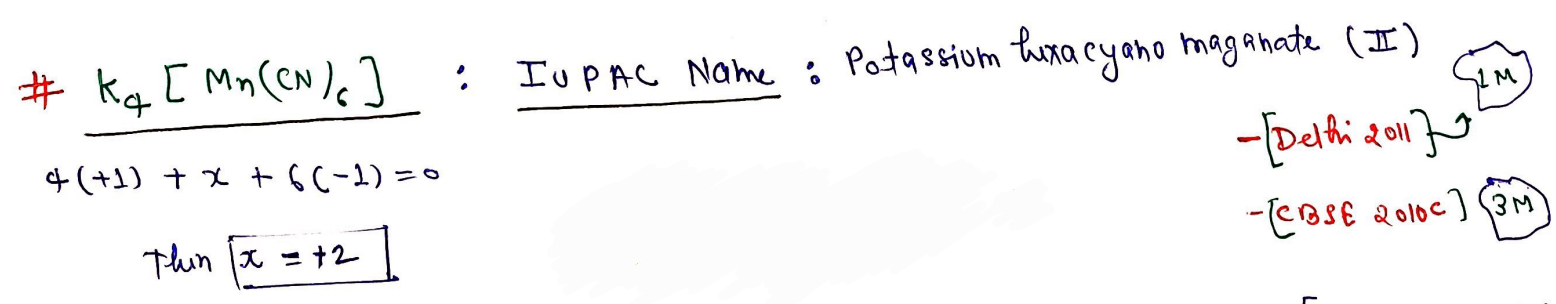 # K4 [ Mn(CN)6 ] : IUPAC Name : Potassium hexacyano maganate (II)
1M
-[Delhi 2011]
4(+1) + x + 6(-1) = 0
-[CBSE 2010C] 3M
Then x = +2